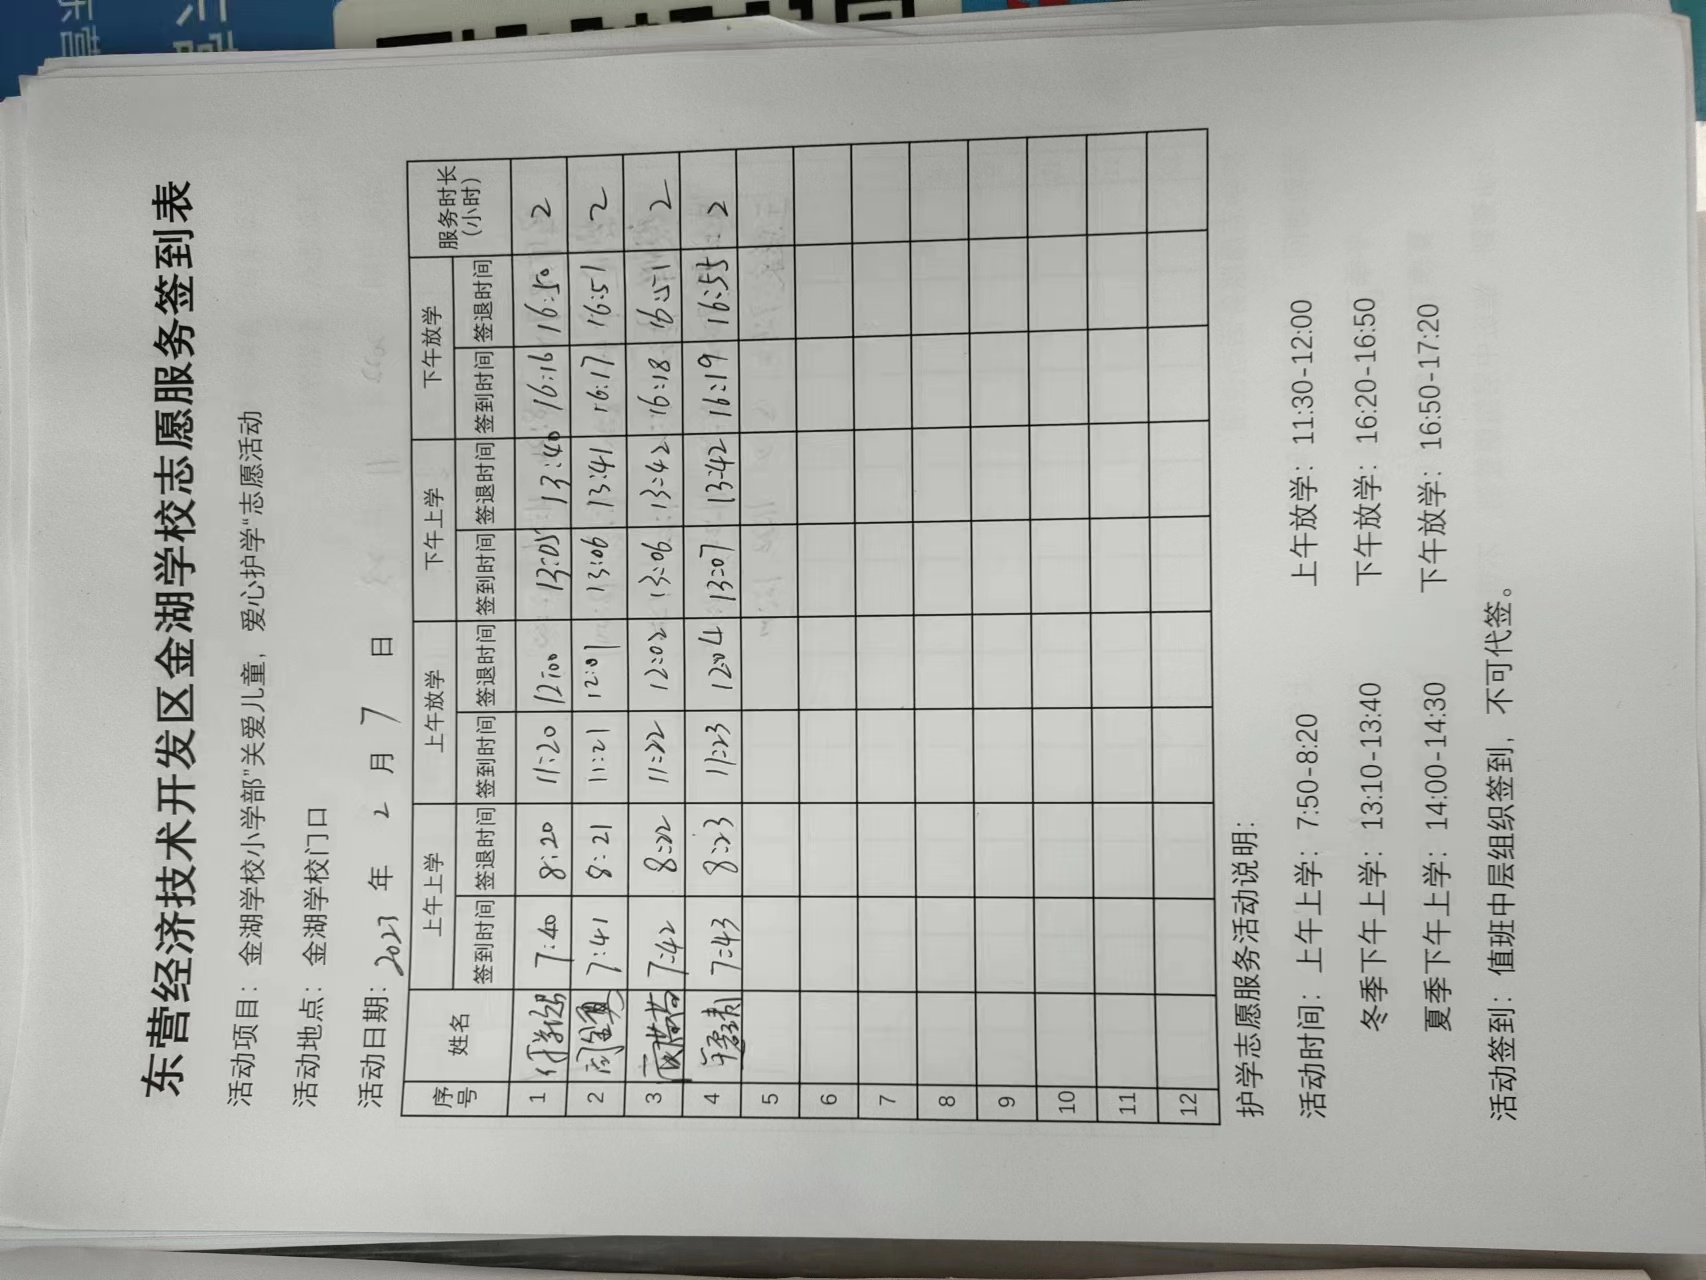 东营经济技术开发区金湖学校志愿服务签到表
活动项目：金湖学校小学部"关爱儿童，爱心护学"志愿活动
活动地点：金湖学校门口
活动日期：2023 年 2 月 7 日
序号 姓名 上午上学 上午放学 下午上学 下午放学 服务时长（小时）
签到时间 签退时间 签到时间 签退时间 签到时间 签退时间 签到时间 签退时间
1 7:40 8:20 11:20 12:00 13:05 13:40 16:16 16:50 2
2 7:41 8:21 11:21 12:01 13:06 13:41 16:17 16:51 2
3 7:42 8:22 11:22 12:02 13:06 13:42 16:18 16:51 2
4 7:43 8:23 11:23 12:04 13:07 13:42 16:19 16:55 2
5
6
7
8
9
10
11
12
护学志愿服务活动说明：
活动时间：上午上学：7:50-8:20 上午放学：11:30-12:00
冬季下午上学：13:10-13:40 下午放学：16:20-16:50
夏季下午上学：14:00-14:30 下午放学：16:50-17:20
活动签到：值班中层组织签到，不可代签。